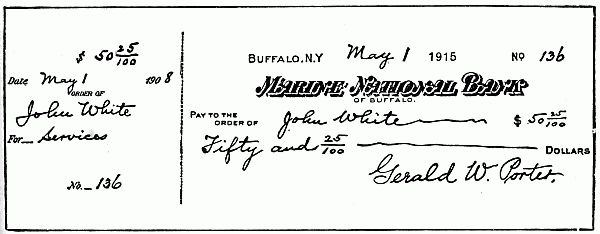 $ 50 25/100
Date May 1 1908
ORDER OF
John White
For Services
No. 136
BUFFALO, N.Y May 1 1915 No 136
MARINE NATIONAL BANK
OF BUFFALO.
PAY TO THE
ORDER OF John White $ 50 25/100
Fifty and 25/100 DOLLARS
Gerald W. Porter.